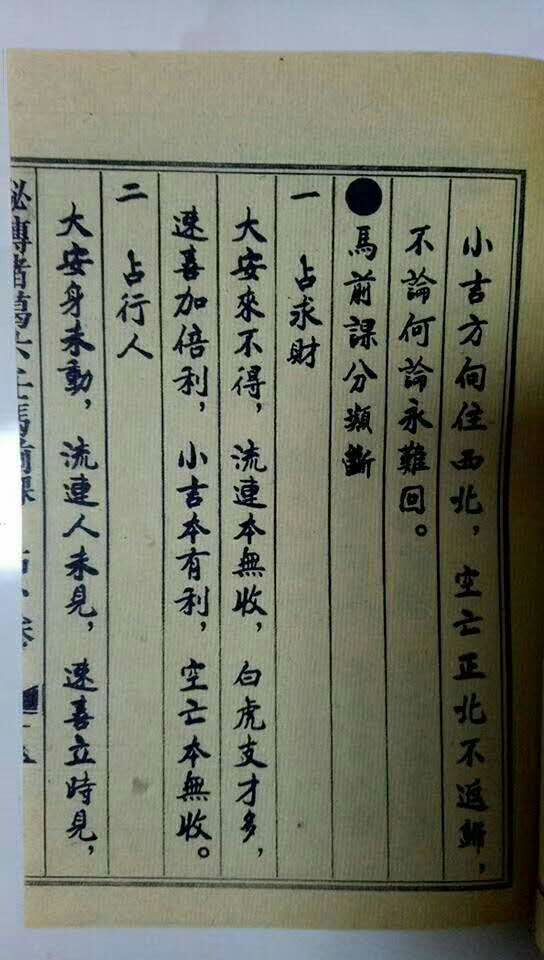 小吉方向住西北，空亡正北不返歸，
不論何論永難回。
●馬前課分類斷
一 占求財
大安來不得，流連本無收，白虎支才多，
速喜加倍利，小吉本有利，空亡本無收。
二 占行人
大安身未動，流連人未見，速喜立時見，
秘傳諸葛六壬馬前課